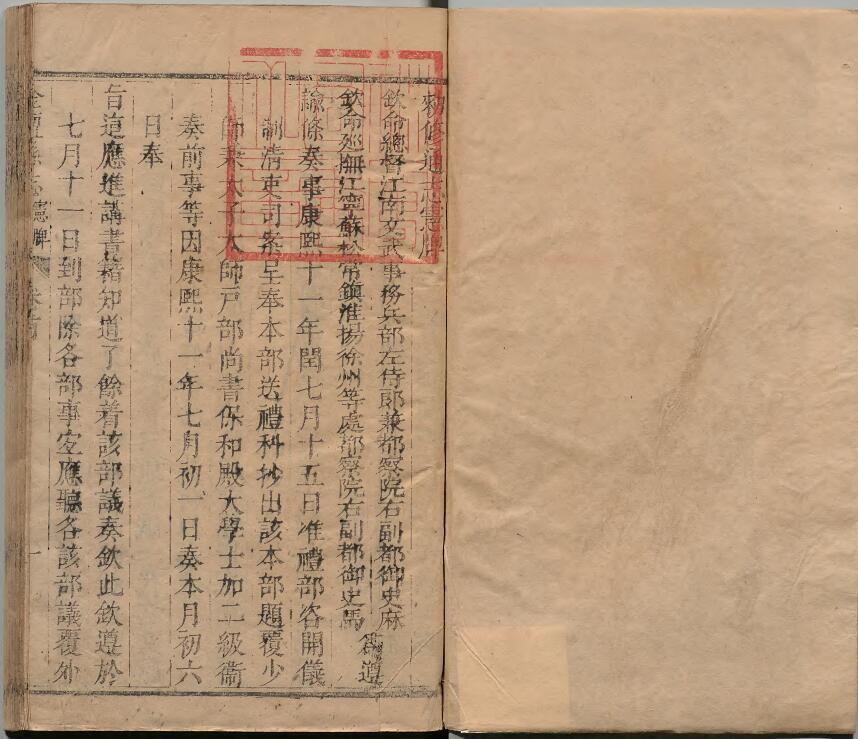 勑修通志憲牌
欽命總督江南文武事務兵部左侍郎兼都察院右副都御史麻
欽命廵撫江寧蘇松常鎮淮揚徐州等處都察院右副都御史馬
為遵
諭條奏事康熙十一年閏七月十五日准禮部咨開儀
制清吏司案呈奉本部送禮科抄出該本部題覆少
師兼太子太師戶部尚書保和殿大學士加二級衞
奏前事等因康熙十一年七月初一日奏本月初六
日奉
旨這應進講書籍知道了餘着該部議奏欽此欽遵於
七月十一日到部除各部事宐應聽各該部議覆外
金壇縣志 憲牌 卷首 一